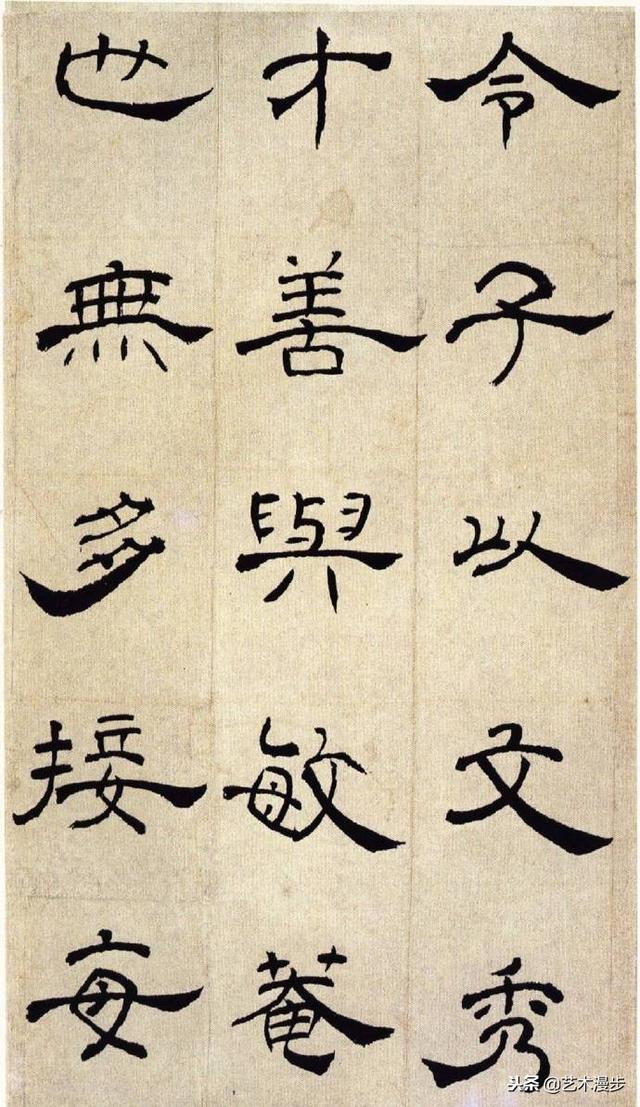 令子以文秀
才善與敏菴
世無多接每
头条 @艺术漫步